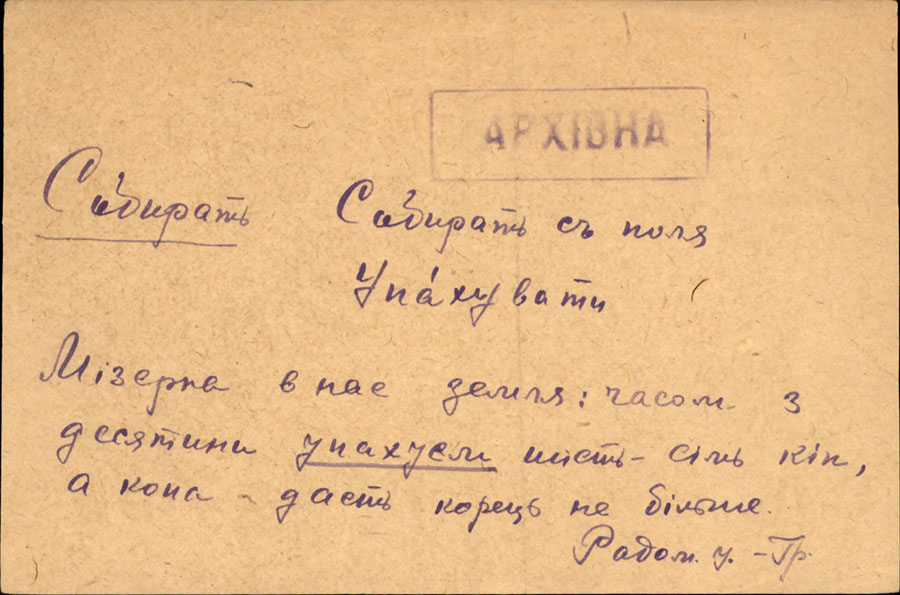 АРХІВНА
Собирать Собирать съ поля
Упа́хувати
Мізерна в нас земля: часом з
десятини упахуєм шість-сім кіп,
а копа - дасть корець не більше.
Радом. у. - Гр.